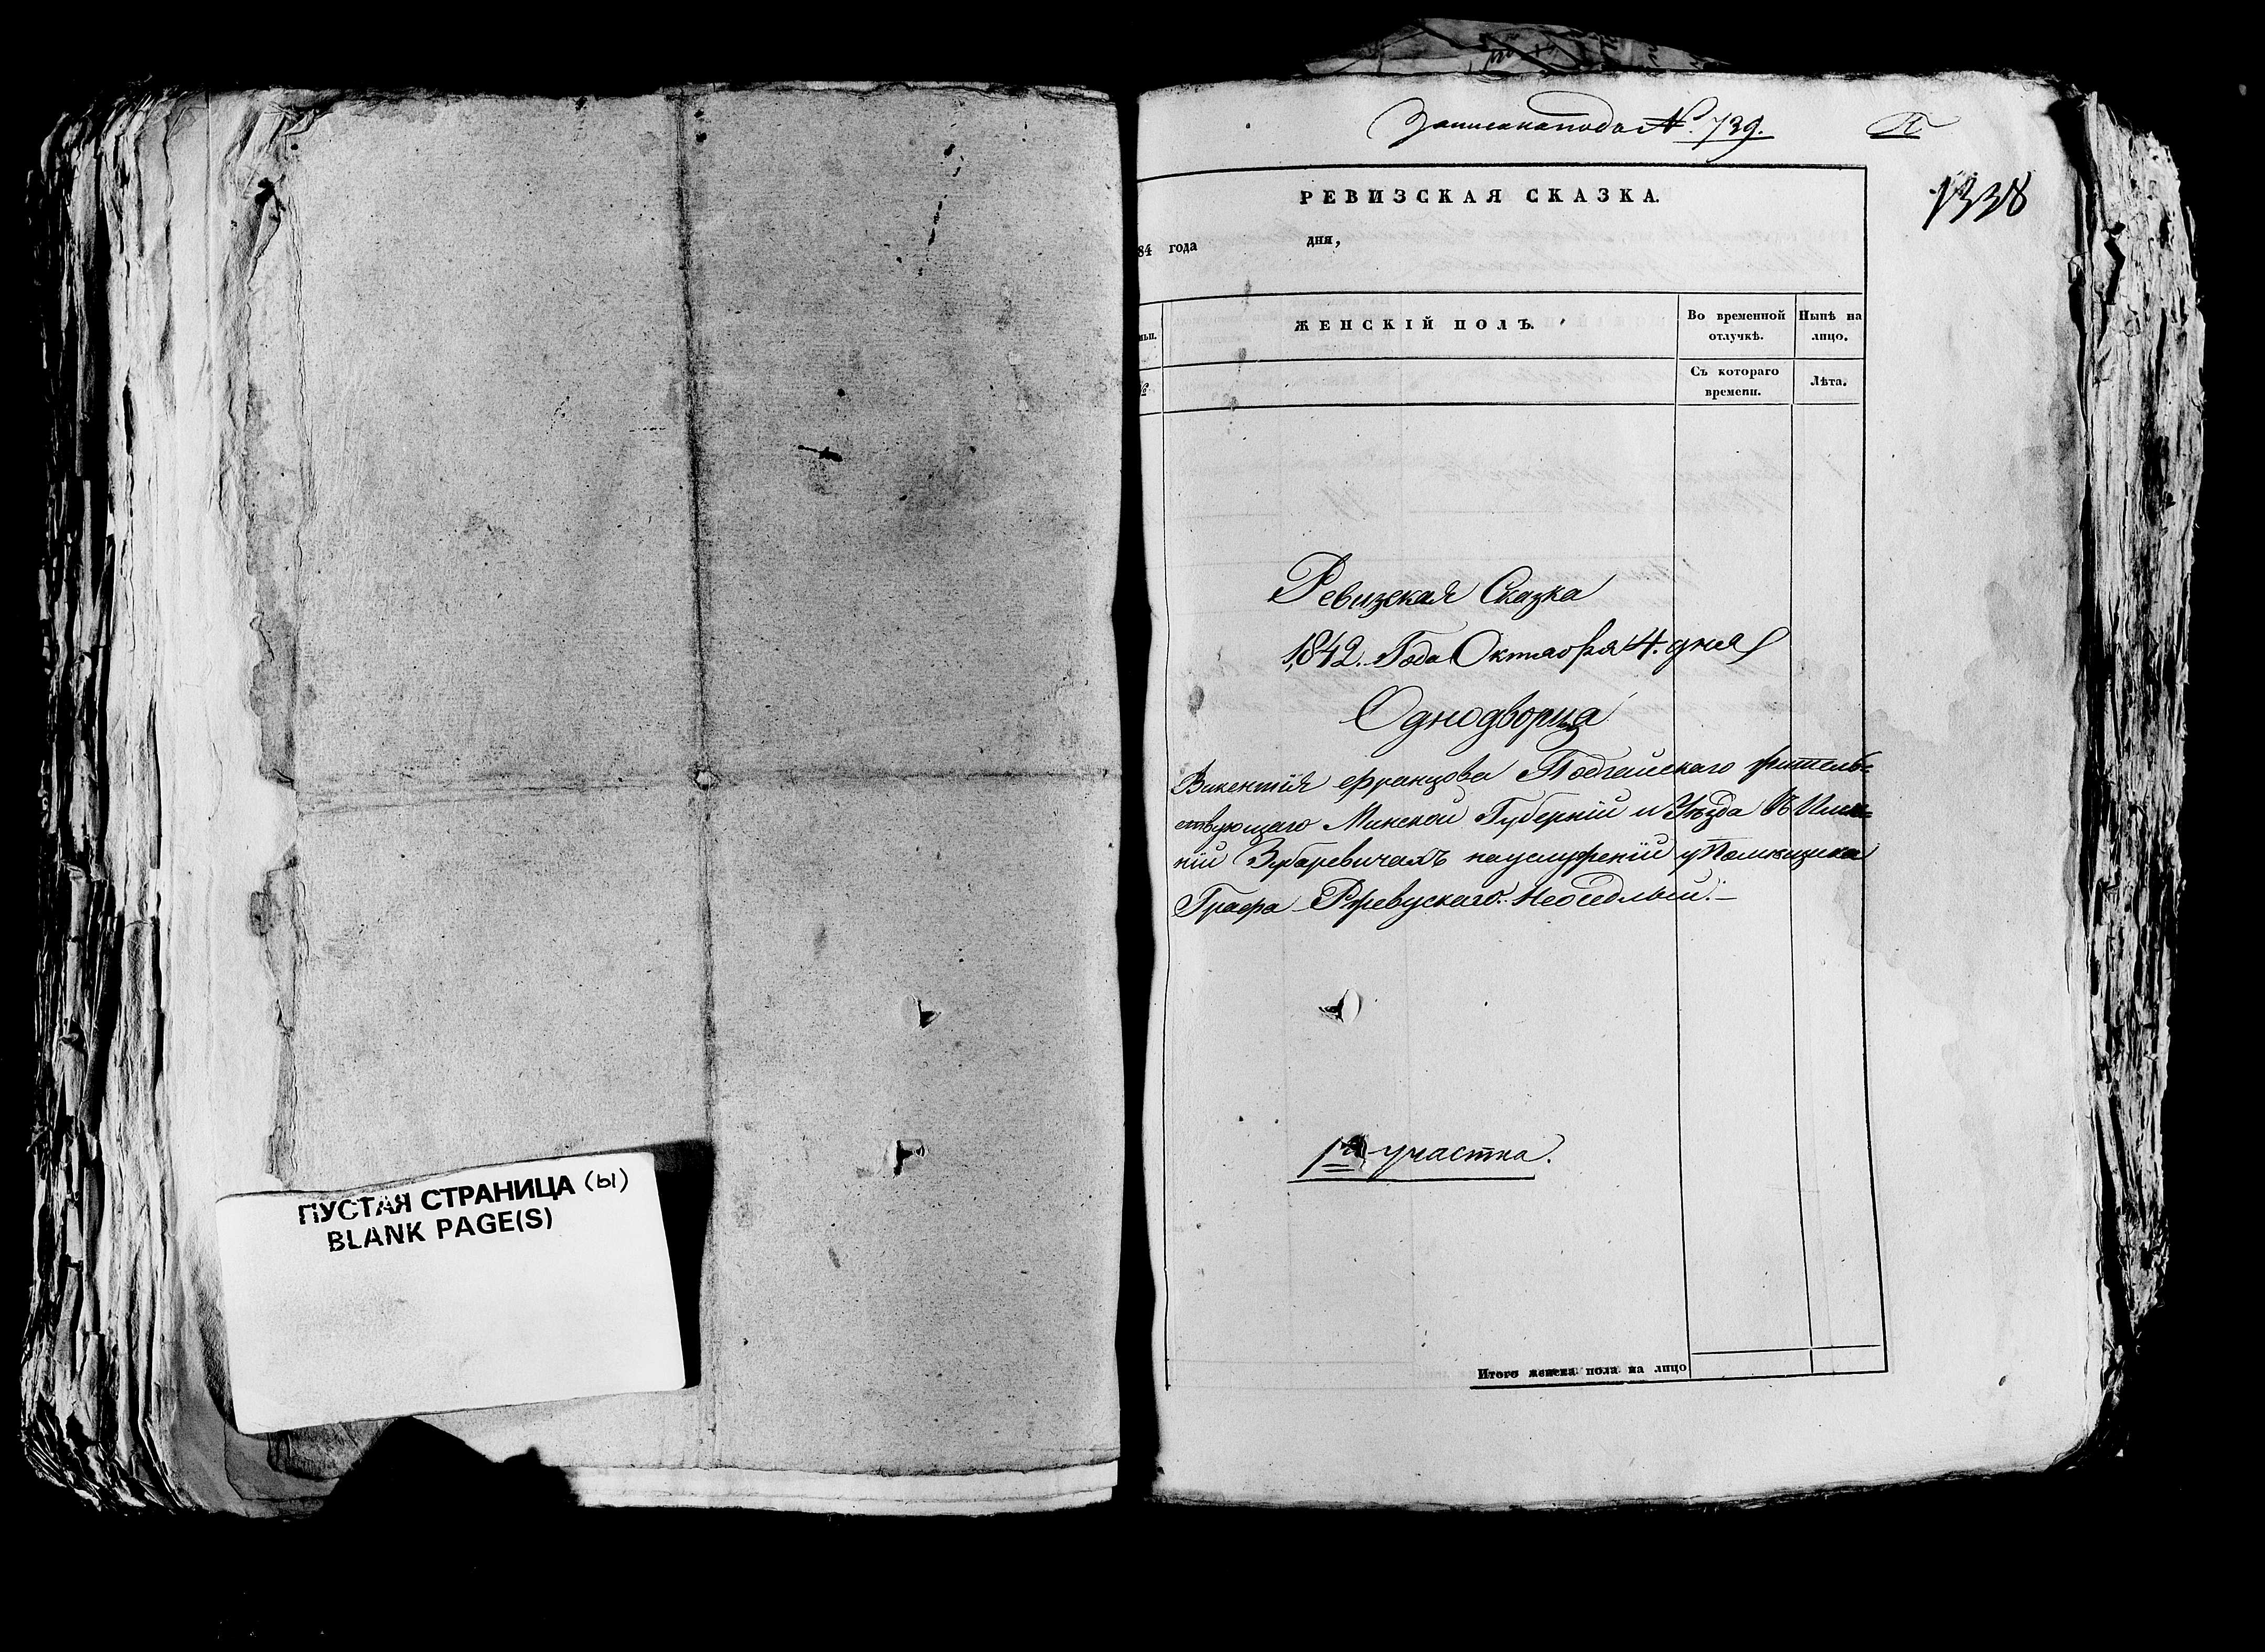 ПУСТАЯ СТРАНИЦА (ы)
BLANK PAGE(S)
Записана подъ №. 739.
П
1338
РЕВИЗСКАЯ СКАЗКА.
84 года дня,
ЖЕНСКІЙ ПОЛЪ.
Во временной отлучкѣ.
Нынѣ на лицо.
Съ котораго времени.
Лѣта.
Ревизская Сказка
1842. Года Октября 4. дня
Однодворца
Викентія Францова Подгайскаго жител-
ствующаго Минской Губерніи и Уѣзда въ Имѣ-
ніи Зубаревичахъ на услуженіи у Помѣщика
Графа Ржевускаго. Неоседлый.—
1го участка.
Итого женска пола на лицо